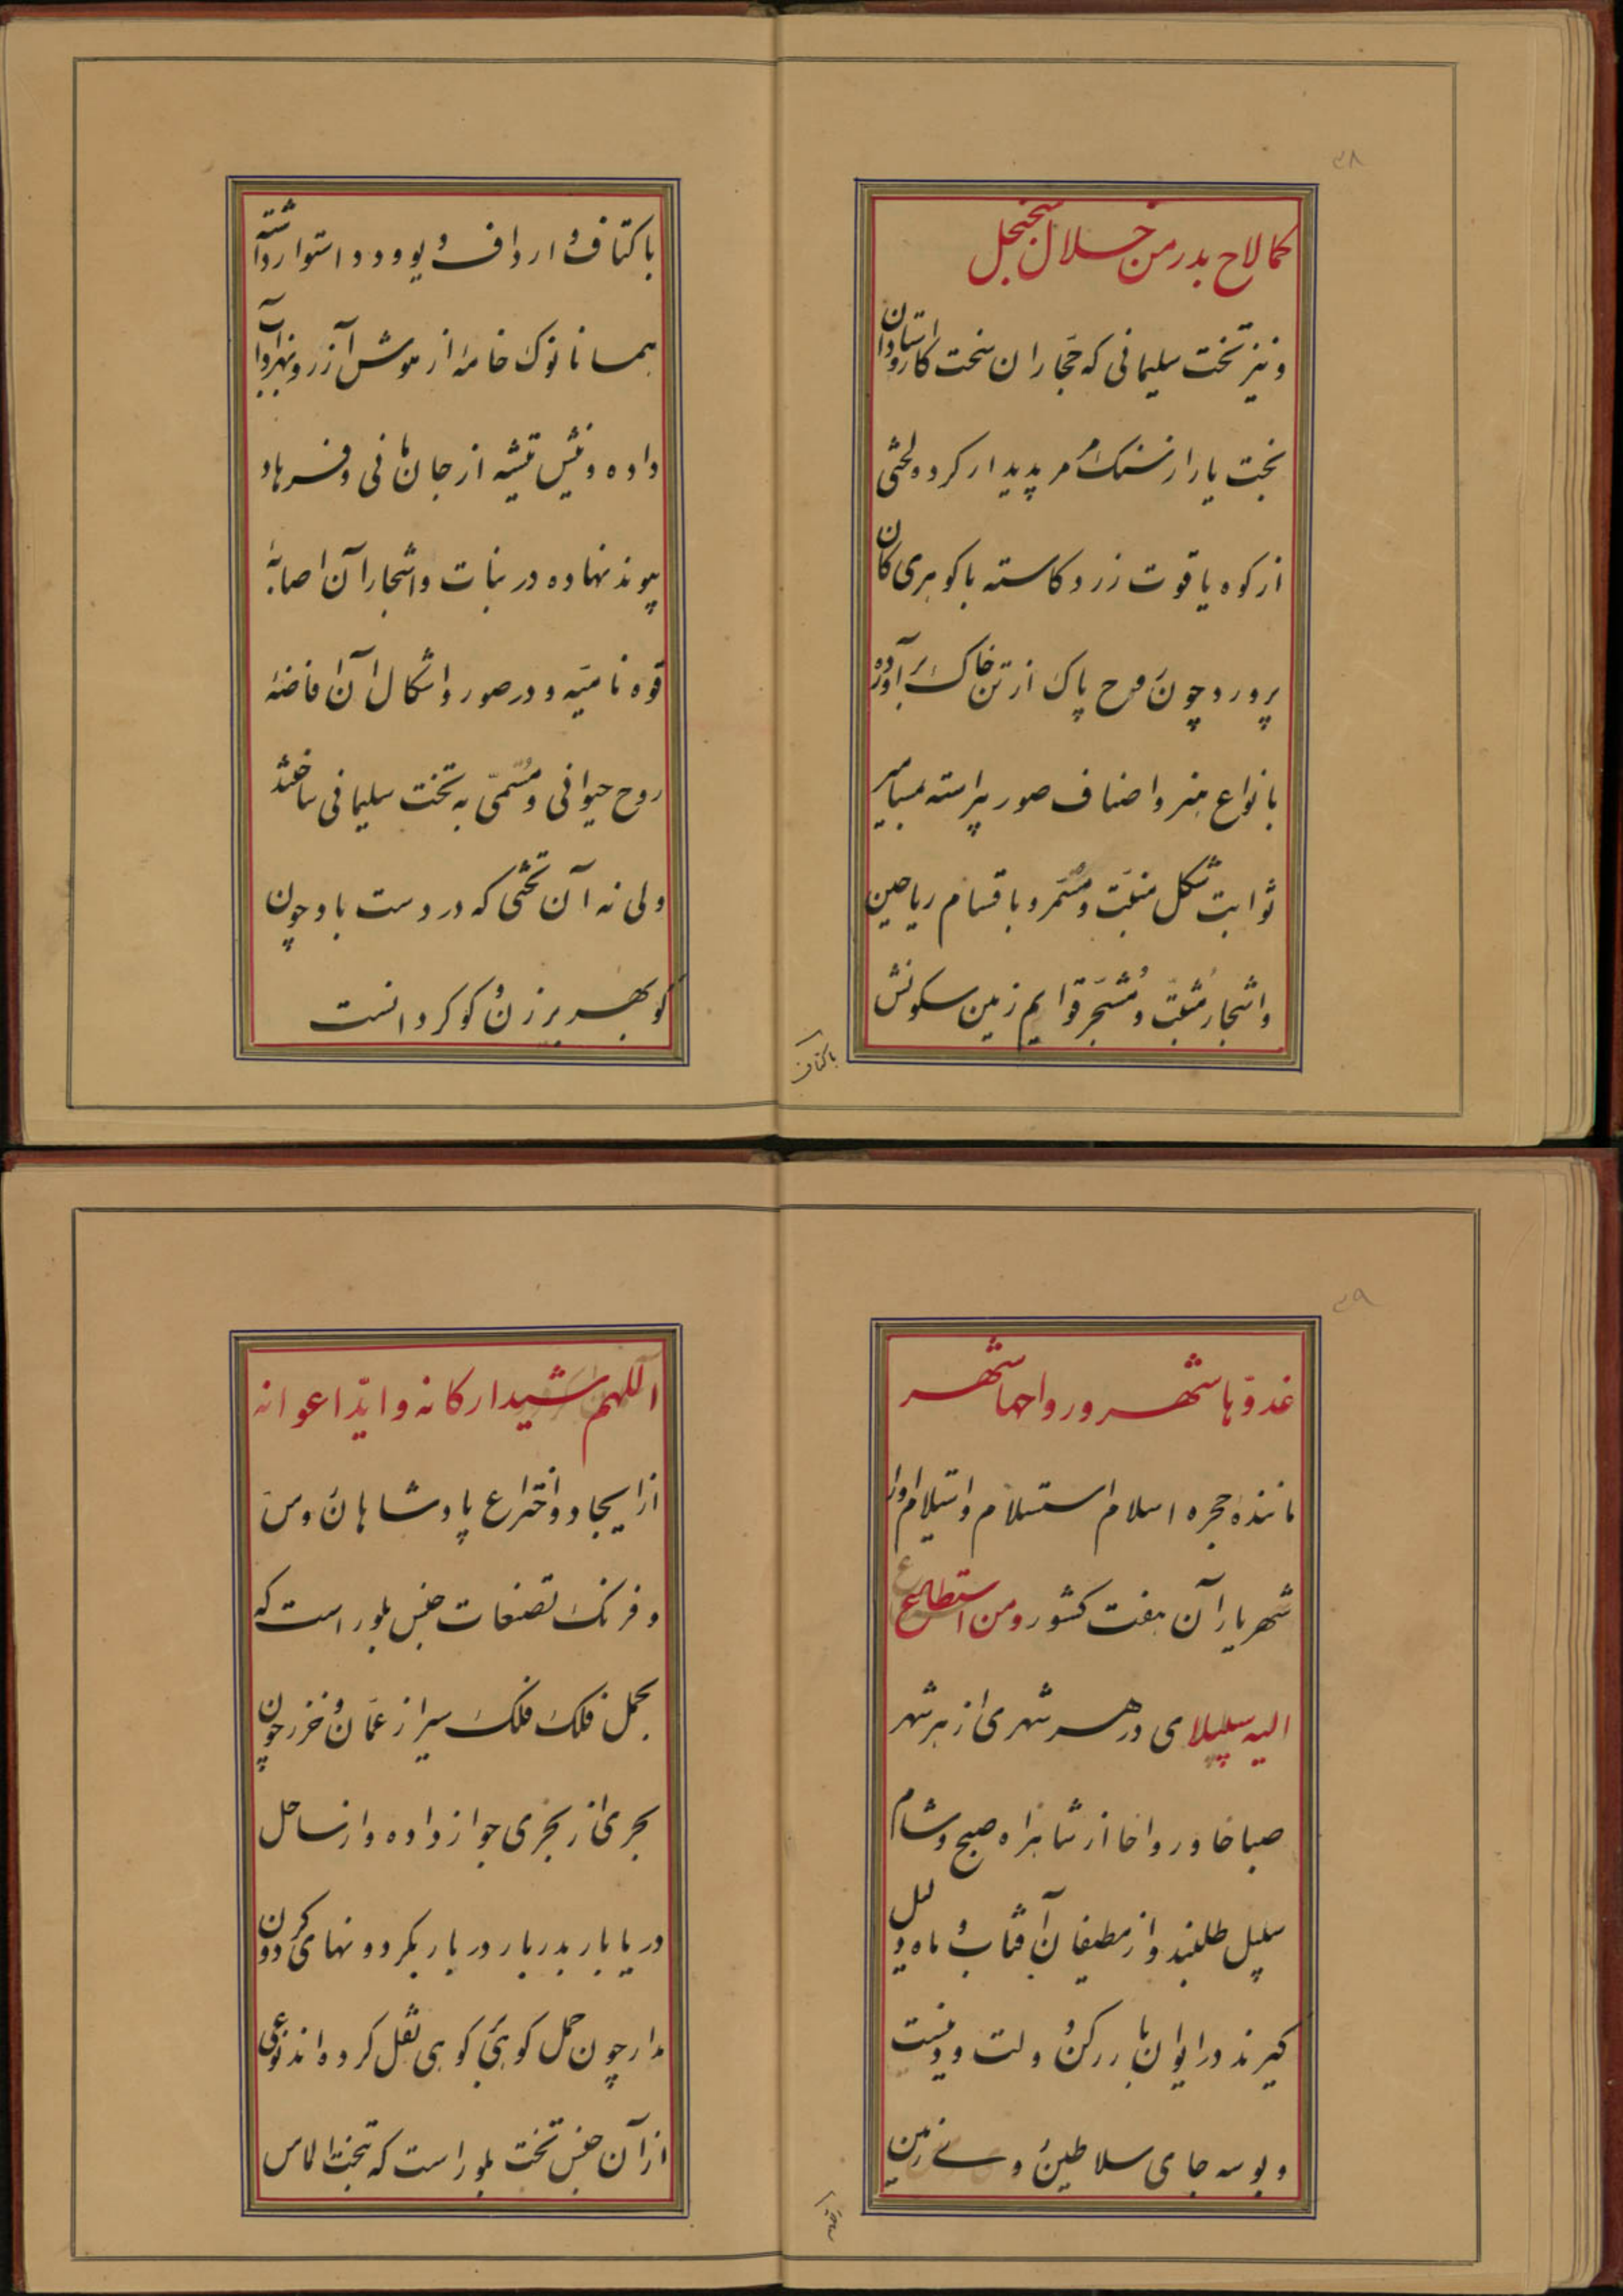 ۳۸
کما لاح بدر من خلال سجنجل
و نیز تخت سلیمانی که حجاران سخت کار و استادان
بخت یار از سنک مرمر پدیدار کرده و لختی
از کوه یاقوت زرد کاسته با کوهری کان
پرورد چون روح پاک از تن خاک برآورده
بانواع هنر و اصناف صور پیراسته بمسامیر
ثوابت شکل منبت و مثمر و باقسام ریاحین
و اشجار مثبت و مشجر قوایم زمین سکونش
باکتاف
باکتاف و ارداف و یو و دد استوار داشته
همانا نوک خامه از هوش آزر و بهزاد آب
داده و نیش تیشه از جان مانی و فرهاد
پیوند نهاده در نبات و اشجار آن اصابهٔ
قوه نامیه و در صور و اشکال آن افاضهٔ
روح حیوانی و مسمی به تخت سلیمانی ساختند
ولی نه آن تختی که در دست باد چون
کو بهر برزن و کو کردانست
۳۹
غدوّها شهر و رواحها شهر
ماننده حجره اسلام استسلام و استیلام او را
شهریاران هفت کشور و من استطاع
الیه سبیلا ی در هر شهری از هر شهر
صباحا و رواحا از شاهراه صبح و شام
سبیل طلبند و از مطیفان آفتاب و ماه دلیل
کیرند در ایوان بار رکن دولت و دینست
و بوسه جای سلاطین روی زمین
اللهم
اللهم شید ارکانه و اید اعوانه
از ایجاد و اختراع پادشاهان روس
و فرنک تصنعات جنس بلور است که
بحمل فلک فلک سیر از عمان و خزر چون
بحری از بحری جواز داده و از ساحل
دریا بار بدربار دربار بکردونهای کردون
مدار چون حمل کوهی بکوهی نقل کرده اند نوعی
از آن جنس تخت بلور است که تخت الماس